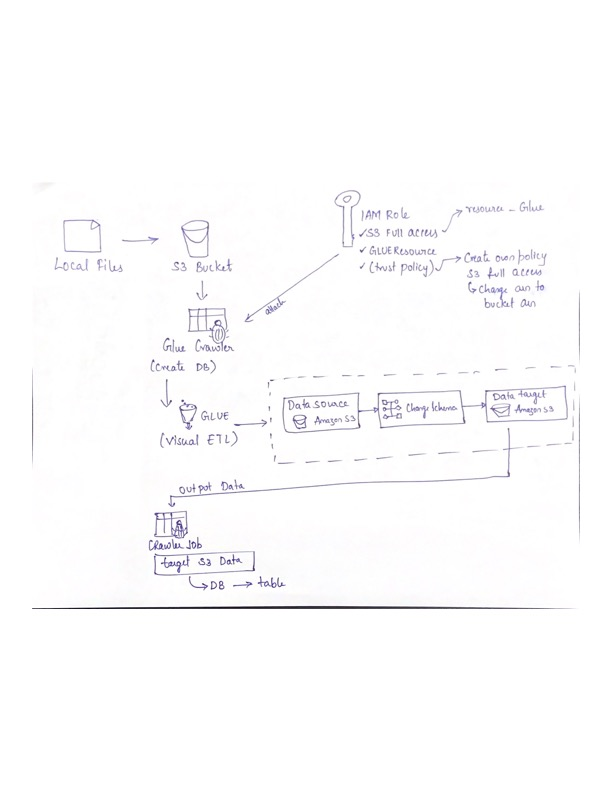 Local Files
S3 Bucket
IAM Role
✓ S3 Full access
resource - Glue
✓ GLUE Resource
✓ (trust policy)
Create own policy
S3 full access
↳ Change arn to
bucket arn
attach
Glue Crawler
(Create DB)
GLUE
(Visual ETL)
Data source
Amazon S3
Change Schema
Data target
Amazon S3
output Data
Crawler Job
target S3 Data
DB → table